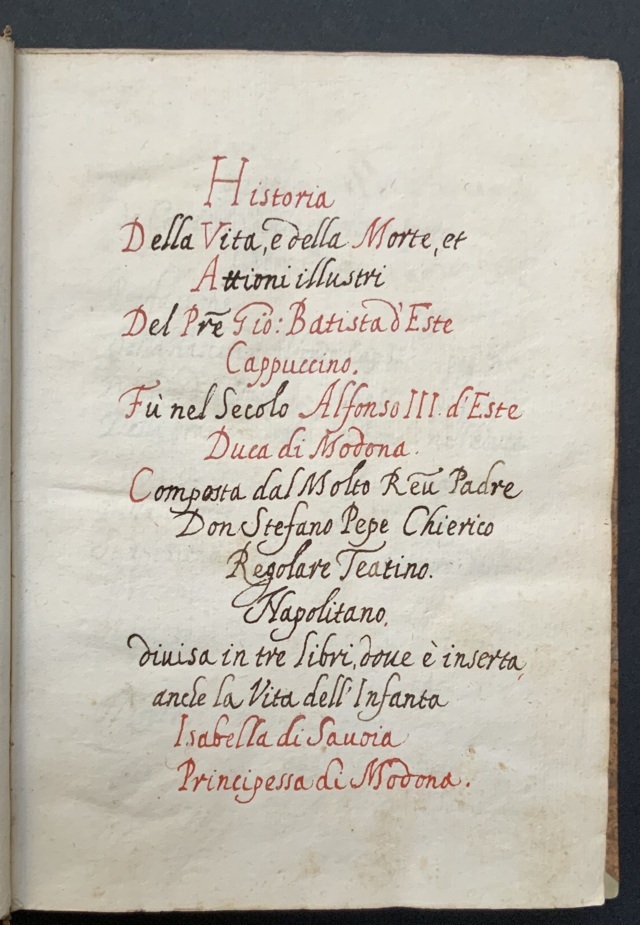 Historia
Della Vita, e della Morte, et
Attioni illustri
Del Pre͂ Gio: Batista d'Este
Cappuccino.
Fù nel Secolo Alfonso III. d'Este
Duca di Modona.
Composta dal Molto Reu͂ Padre
Don Stefano Pepe Chierico
Regolare Teatino.
Napolitano,
diuisa in tre libri, doue è inserta
anche la Vita dell'Infanta
Isabella di Sauoia
Principessa di Modona.